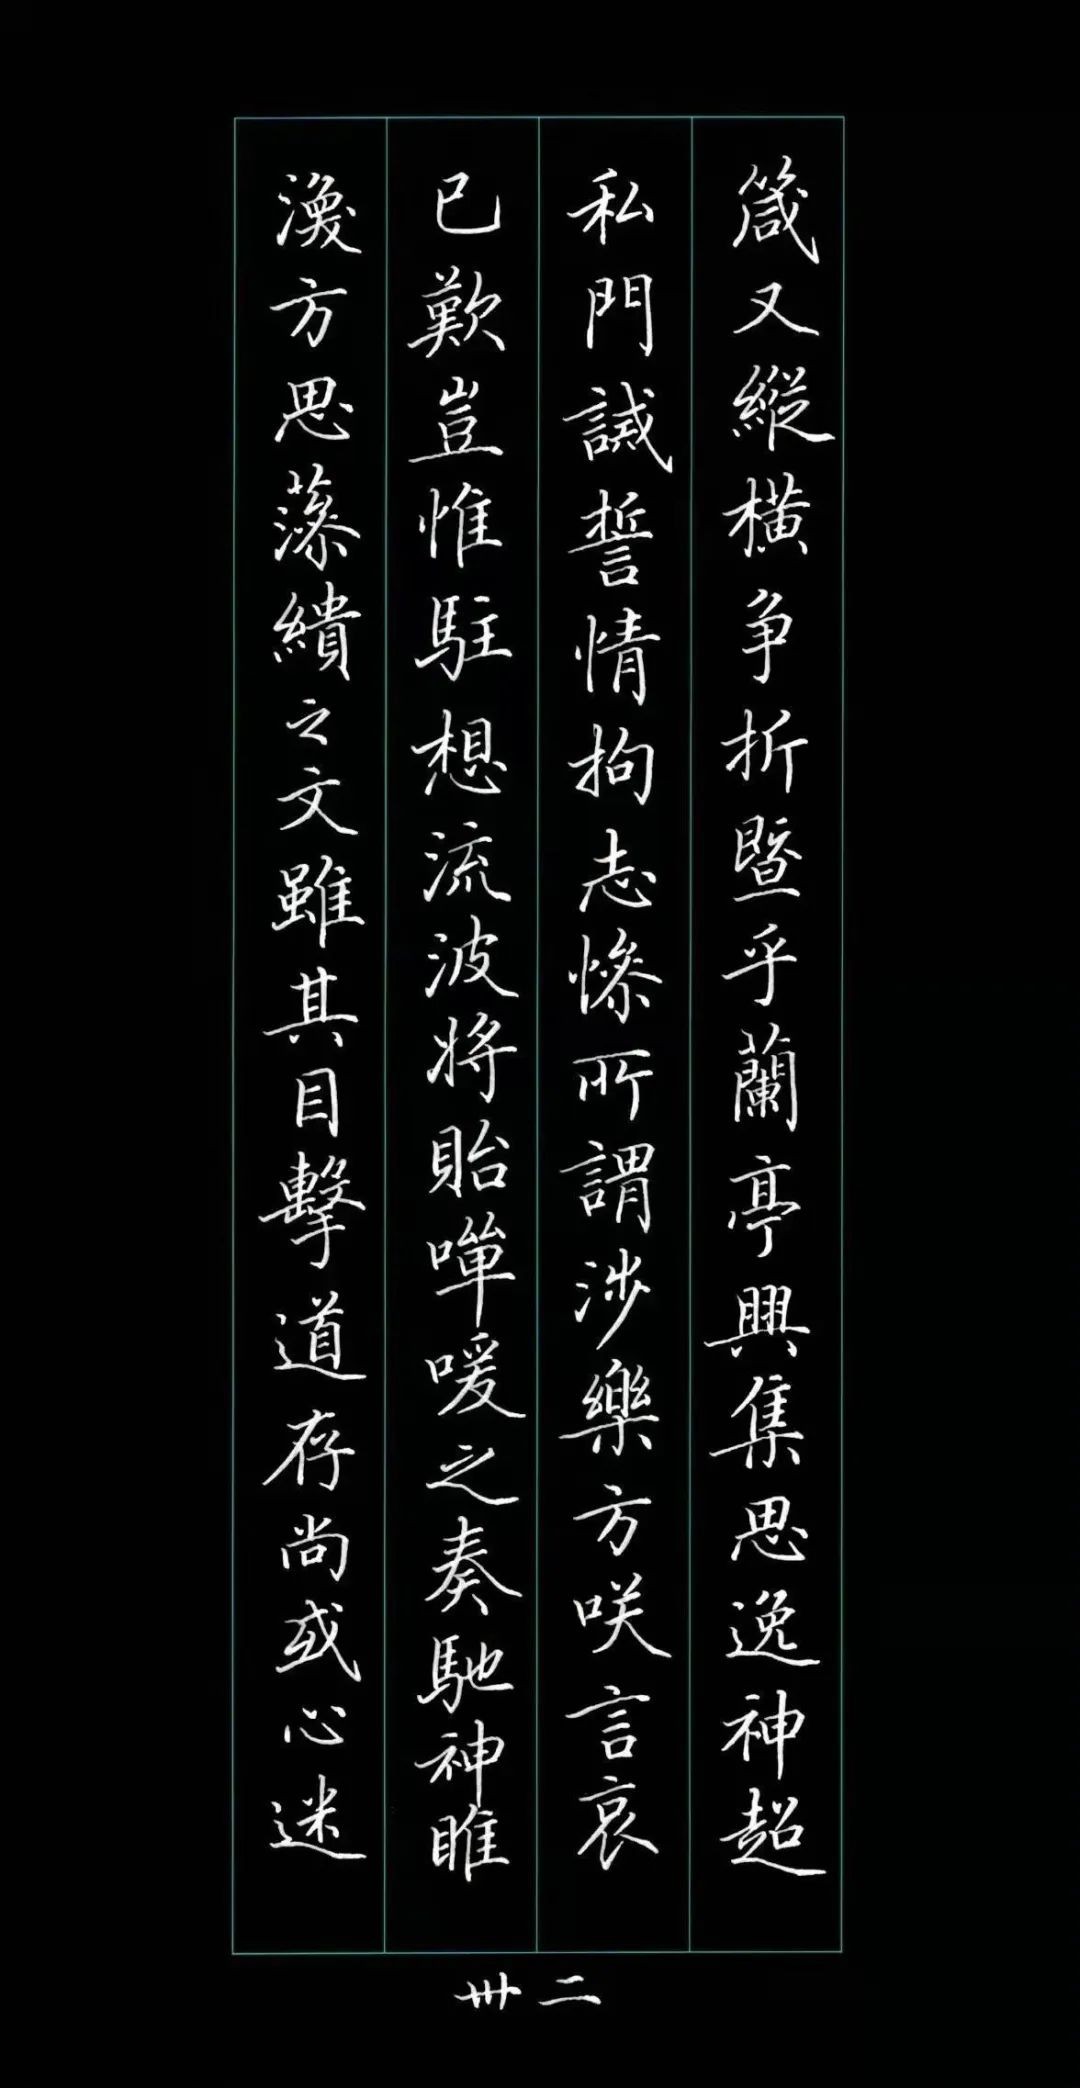 箴又縱橫争折暨乎蘭亭興集思逸神超
私門誡誓情拘志慘所謂涉樂方咲言哀
已歎豈惟駐想流波將貽嘽喛之奏馳神睢
渙方思藻繢之文雖其目擊道存尚或心迷
卅二